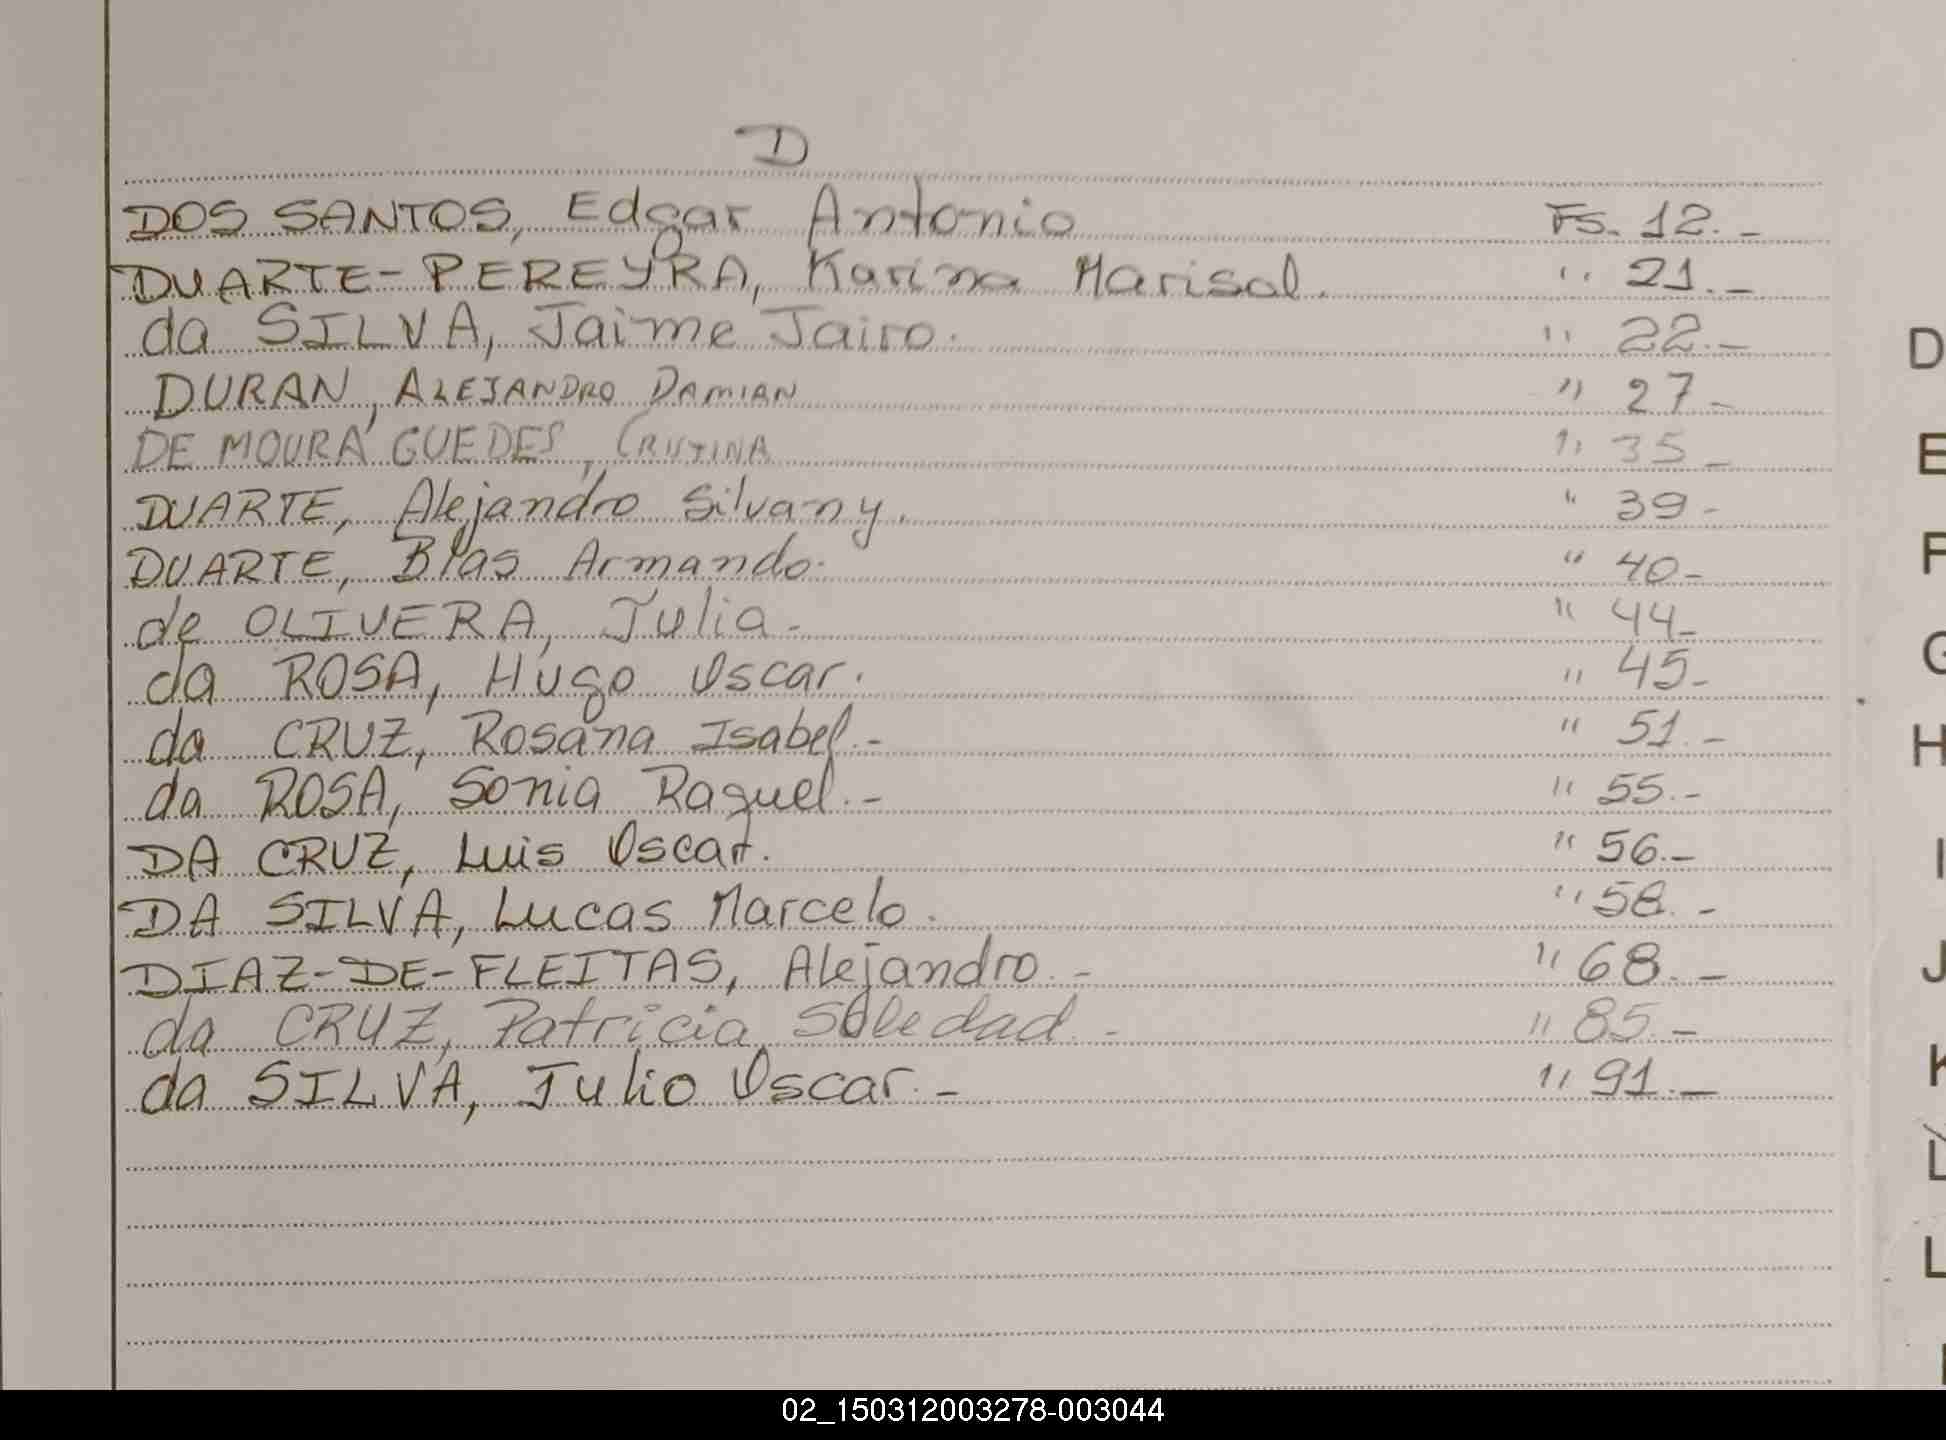 D
DOS SANTOS, Edgar Antonio Fs. 12.-
DUARTE-PEREYRA, Karina Marisol. " 21.-
da SILVA, Jaime Jairo. " 22.-
DURAN, ALEJANDRO DAMIAN " 27-
DE MOURA GUEDES, CRISTINA " 35-
DUARTE, Alejandro Silvany. " 39-
DUARTE, Blas Armando. " 40-
de OLIVERA, Julia- " 44-
da ROSA, Hugo Oscar. " 45-
da CRUZ, Rosana Isabel.- " 51.-
da ROSA, Sonia Raquel.- " 55.-
DA CRUZ, Luis Oscar. " 56.-
DA SILVA, Lucas Marcelo. " 58.-
DIAZ-DE-FLEITAS, Alejandro.- " 68.-
da CRUZ, Patricia Soledad.- " 85.-
da SILVA, Julio Oscar.- " 91.-
D
E
F
G
H
I
J
K
L
L
02_150312003278-003044